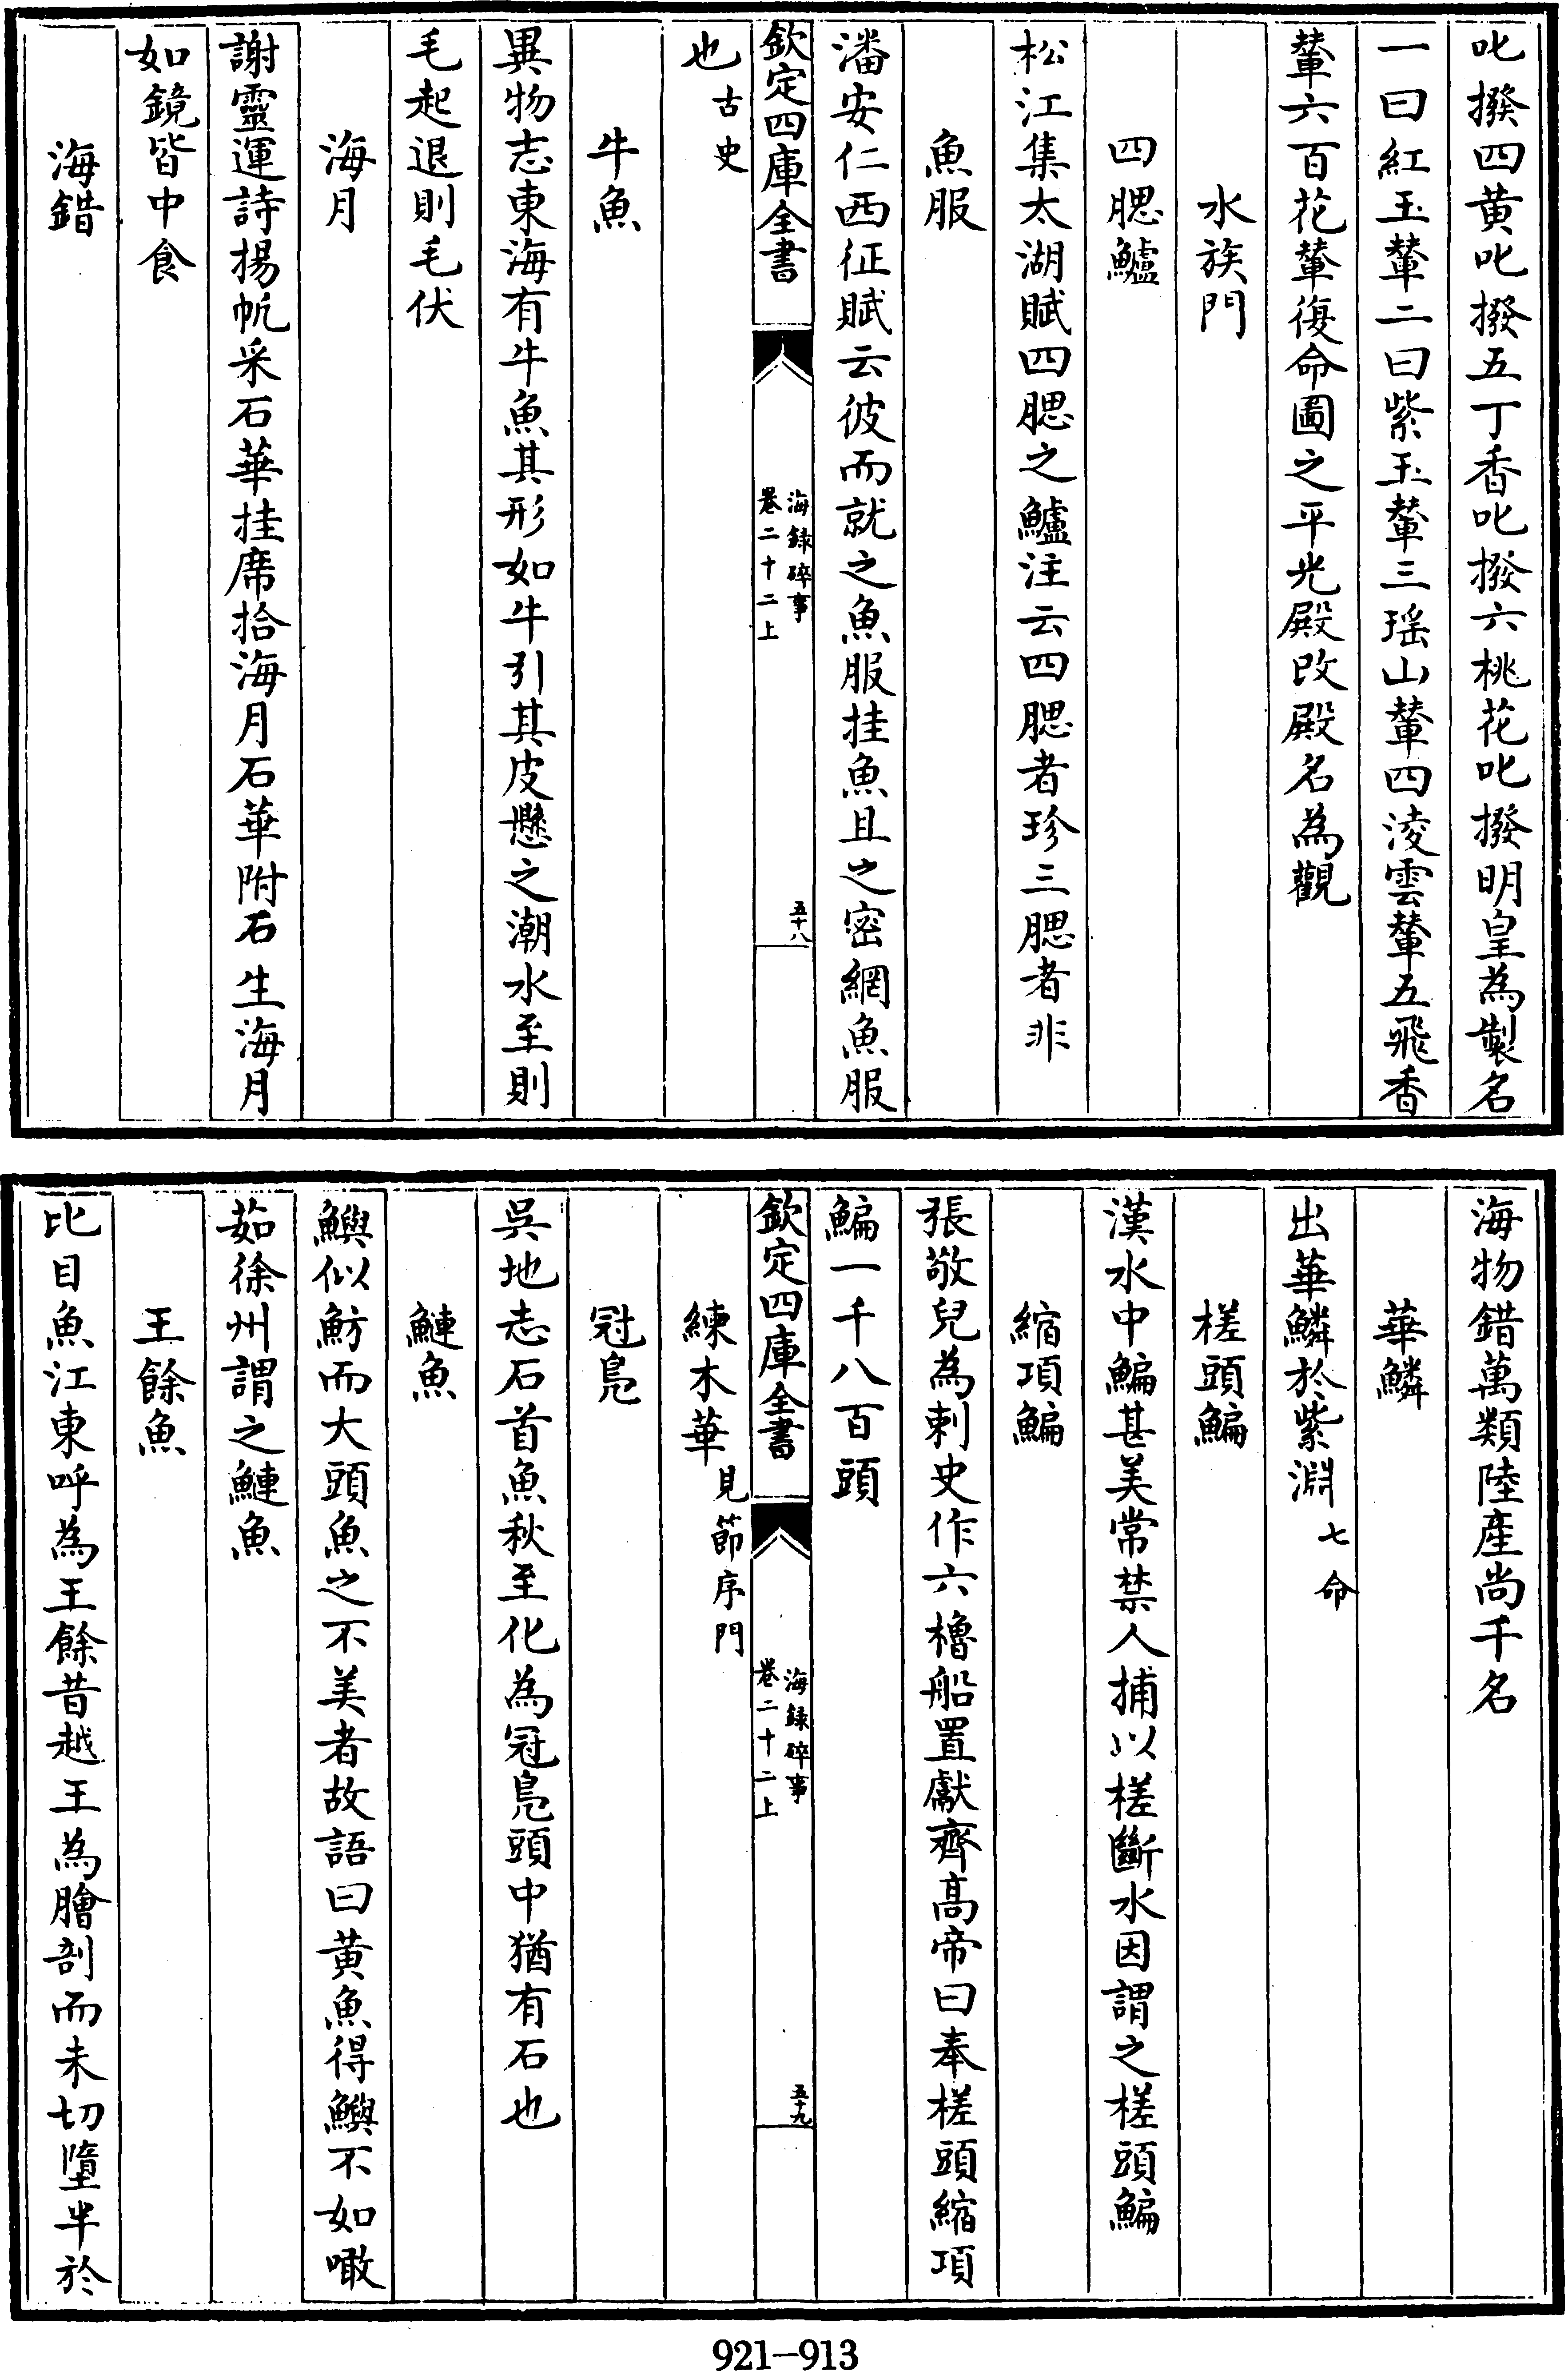 叱撥四黄叱撥五丁香叱撥六桃花叱撥明皇為製名
一曰紅玉輦二曰紫玉輦三瑶山輦四淩雲輦五飛香
輦六百花輦復命圖之平光殿改殿名為觀
水族門
四腮鱸
松江集太湖賦四腮之鱸注云四腮者珍三腮者非
魚服
潘安仁西征賦云彼而就之魚服挂魚且之密網魚服
欽定四庫全書
海録碎事
卷二十二上
五十八
也古史
牛魚
異物志東海有牛魚其形如牛引其皮懸之潮水至則
毛起退則毛伏
海月
謝靈運詩揚帆采石華挂席拾海月石華附石生海月
如鏡皆中食
海錯
海物錯萬類陸產尚千名
華鱗
出華鱗於紫淵七命
槎頭鯿
漢水中鯿甚美常禁人捕以槎斷水因謂之槎頭鯿
縮項鯿
張敬兒為刺史作六櫓船置獻齊高帝曰奉槎頭縮項
鯿一千八百頭
欽定四庫全書
海録碎事
卷二十二上
五十九
練木華見節序門
冠鳧
吳地志石首魚秋至化為冠鳧頭中猶有石也
鰱魚
鱮似魴而大頭魚之不美者故語曰黄魚得鱮不如噉
茹徐州謂之鰱魚
王餘魚
比目魚江東呼為王餘昔越王為膾剖而未切墮半於
921-913